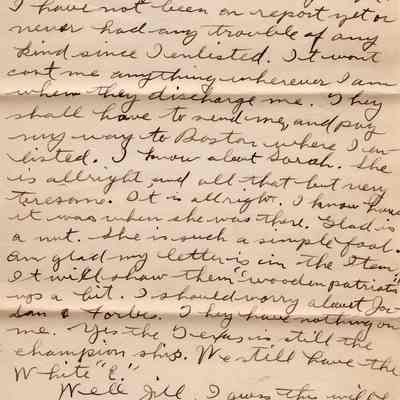 I have not been on report yet or
never had any trouble of any
kind since I enlisted. It wont
cost me anything wherever I am
when they discharge me. They
shall have to send me, and pay
my way to Boston where I en-
listed. I know about Sarah. She
is allright and all that but very
tiresome. It is allright. I know how
it was when she was there. Glad is
a nut. She is such a simple fool.
am glad my letter is in the Item
It will show them "wooden patriots"
up a bit. I should worry about Jor-
dan & Forbes. They have nothing on
me. Yes the Texas is still the
champion ship. We still have the
White "E."
Well Jill, I guess this will be